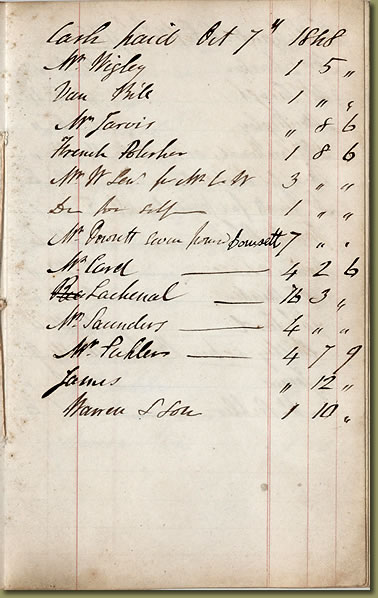 Cash paid Oct 7th 1848
Mr Wigley 1 5 "
Van Bill 1 " "
Mr Jarvis " 8 6
French Polisher 1 8 6
Mr W for Mr W 3 " "
Do for self 1 " "
Mr Dowsett seven pounds Dowsett 7 " "
Mr Card — 4 2 6
Lachenal — 16 3 "
Mr Saunders — 4 " "
Mr — 4 7 9
James " 12 "
Warren & Son 1 10 "